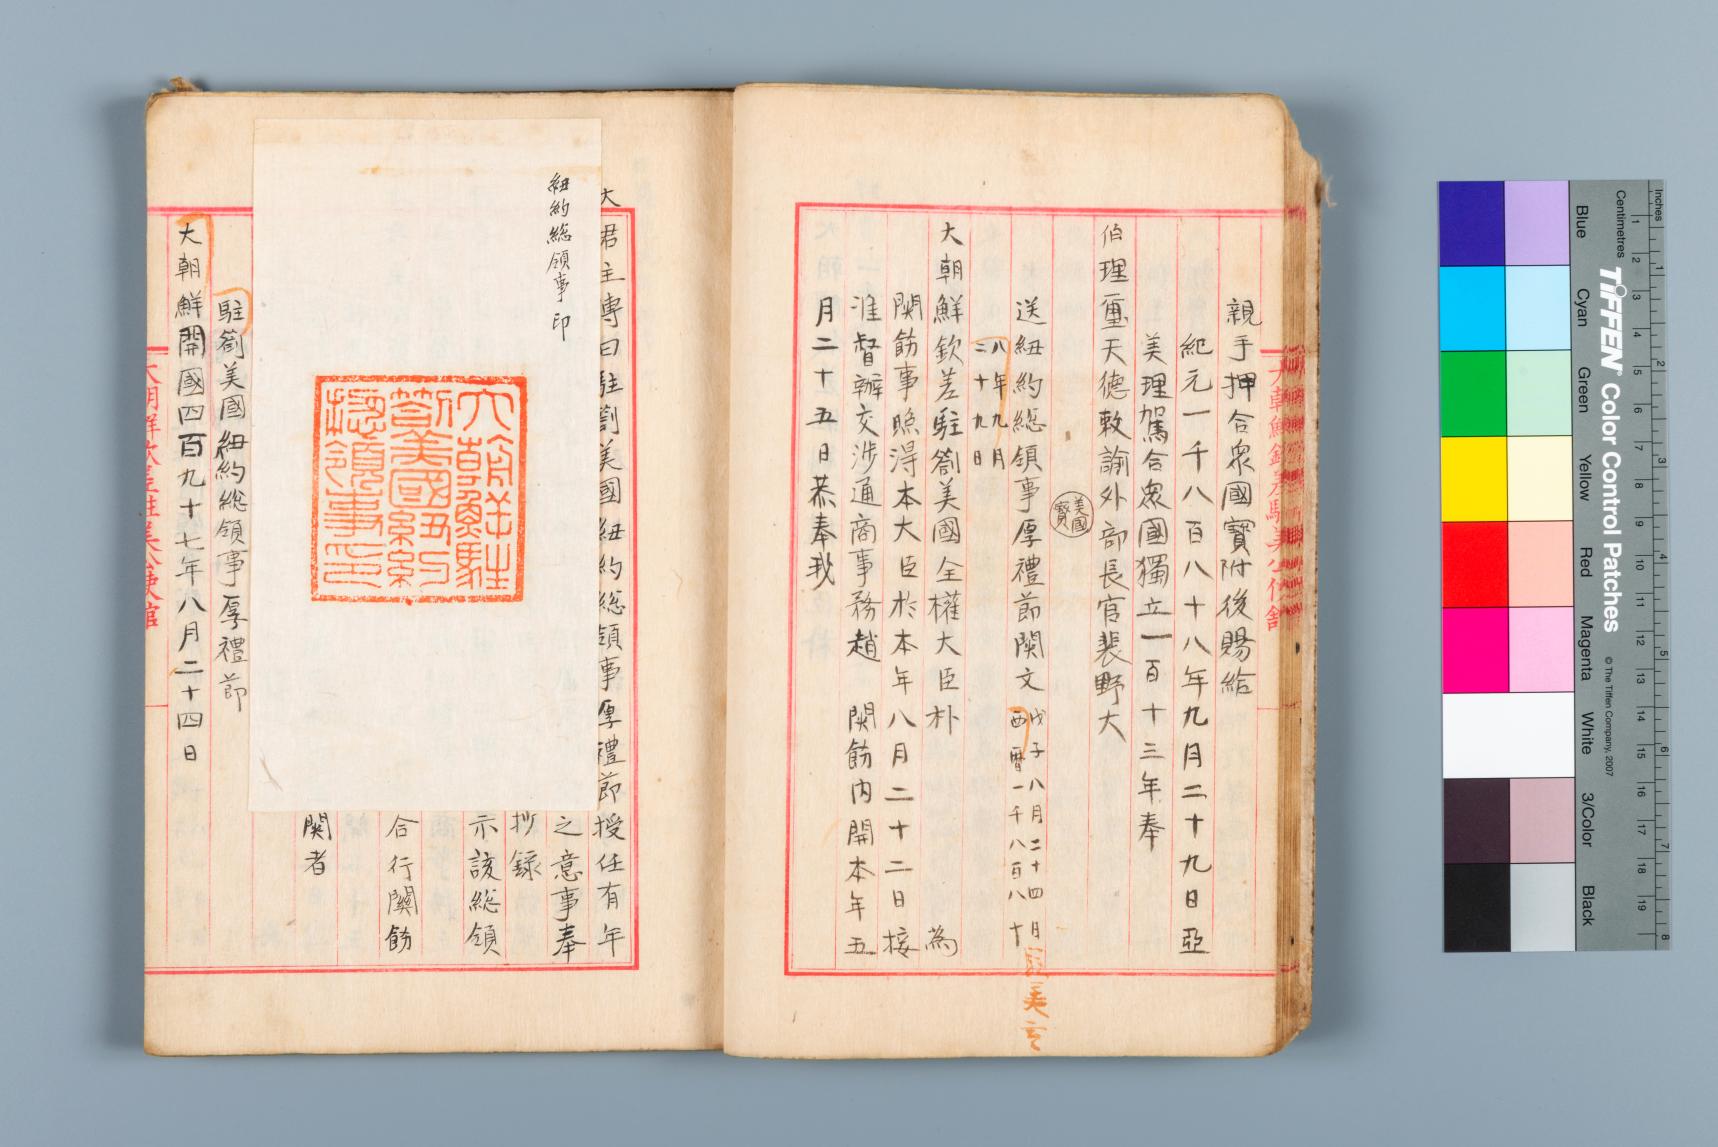 親手押合衆國寶附後賜給
紀元一千八百八十八年九月二十九日亞
美理駕合衆國獨立一百十三年奉
伯理璽天德敕諭外部長官裴野大
美國寶
送紐約總領事厚禮節関文
戊子八月二十四日
西曆一千八百八十
八年九月
二十九日
大朝鮮欽差駐劄美國全權大臣朴 為
関飭事照得本大臣於本年八月二十二日接
准督辦交涉通商事務趙 関飭內開本年五
月二十五日恭奉我
大朝鮮欽差駐美公使館
大君主傳曰駐劄美國紐約總領事厚禮節授任有年
之意事奉
抄錄
示該總領
合行関飭
関者
紐約總領事印
大朝鮮駐
劄美國紐約
總領事印
駐劄美國紐約總領事厚禮節
大朝鮮開國四百九十七年八月二十四日
大朝鮮欽差駐美公使館
Inches
Centimetres
TIFFEN® Color Control Patches
© The Tiffen Company, 2007
Blue
Cyan
Green
Yellow
Red
Magenta
White
3/Color
Black
1 2 3 4 5 6 7 8
1 2 3 4 5 6 7 8 9 10 11 12 13 14 15 16 17 18 19